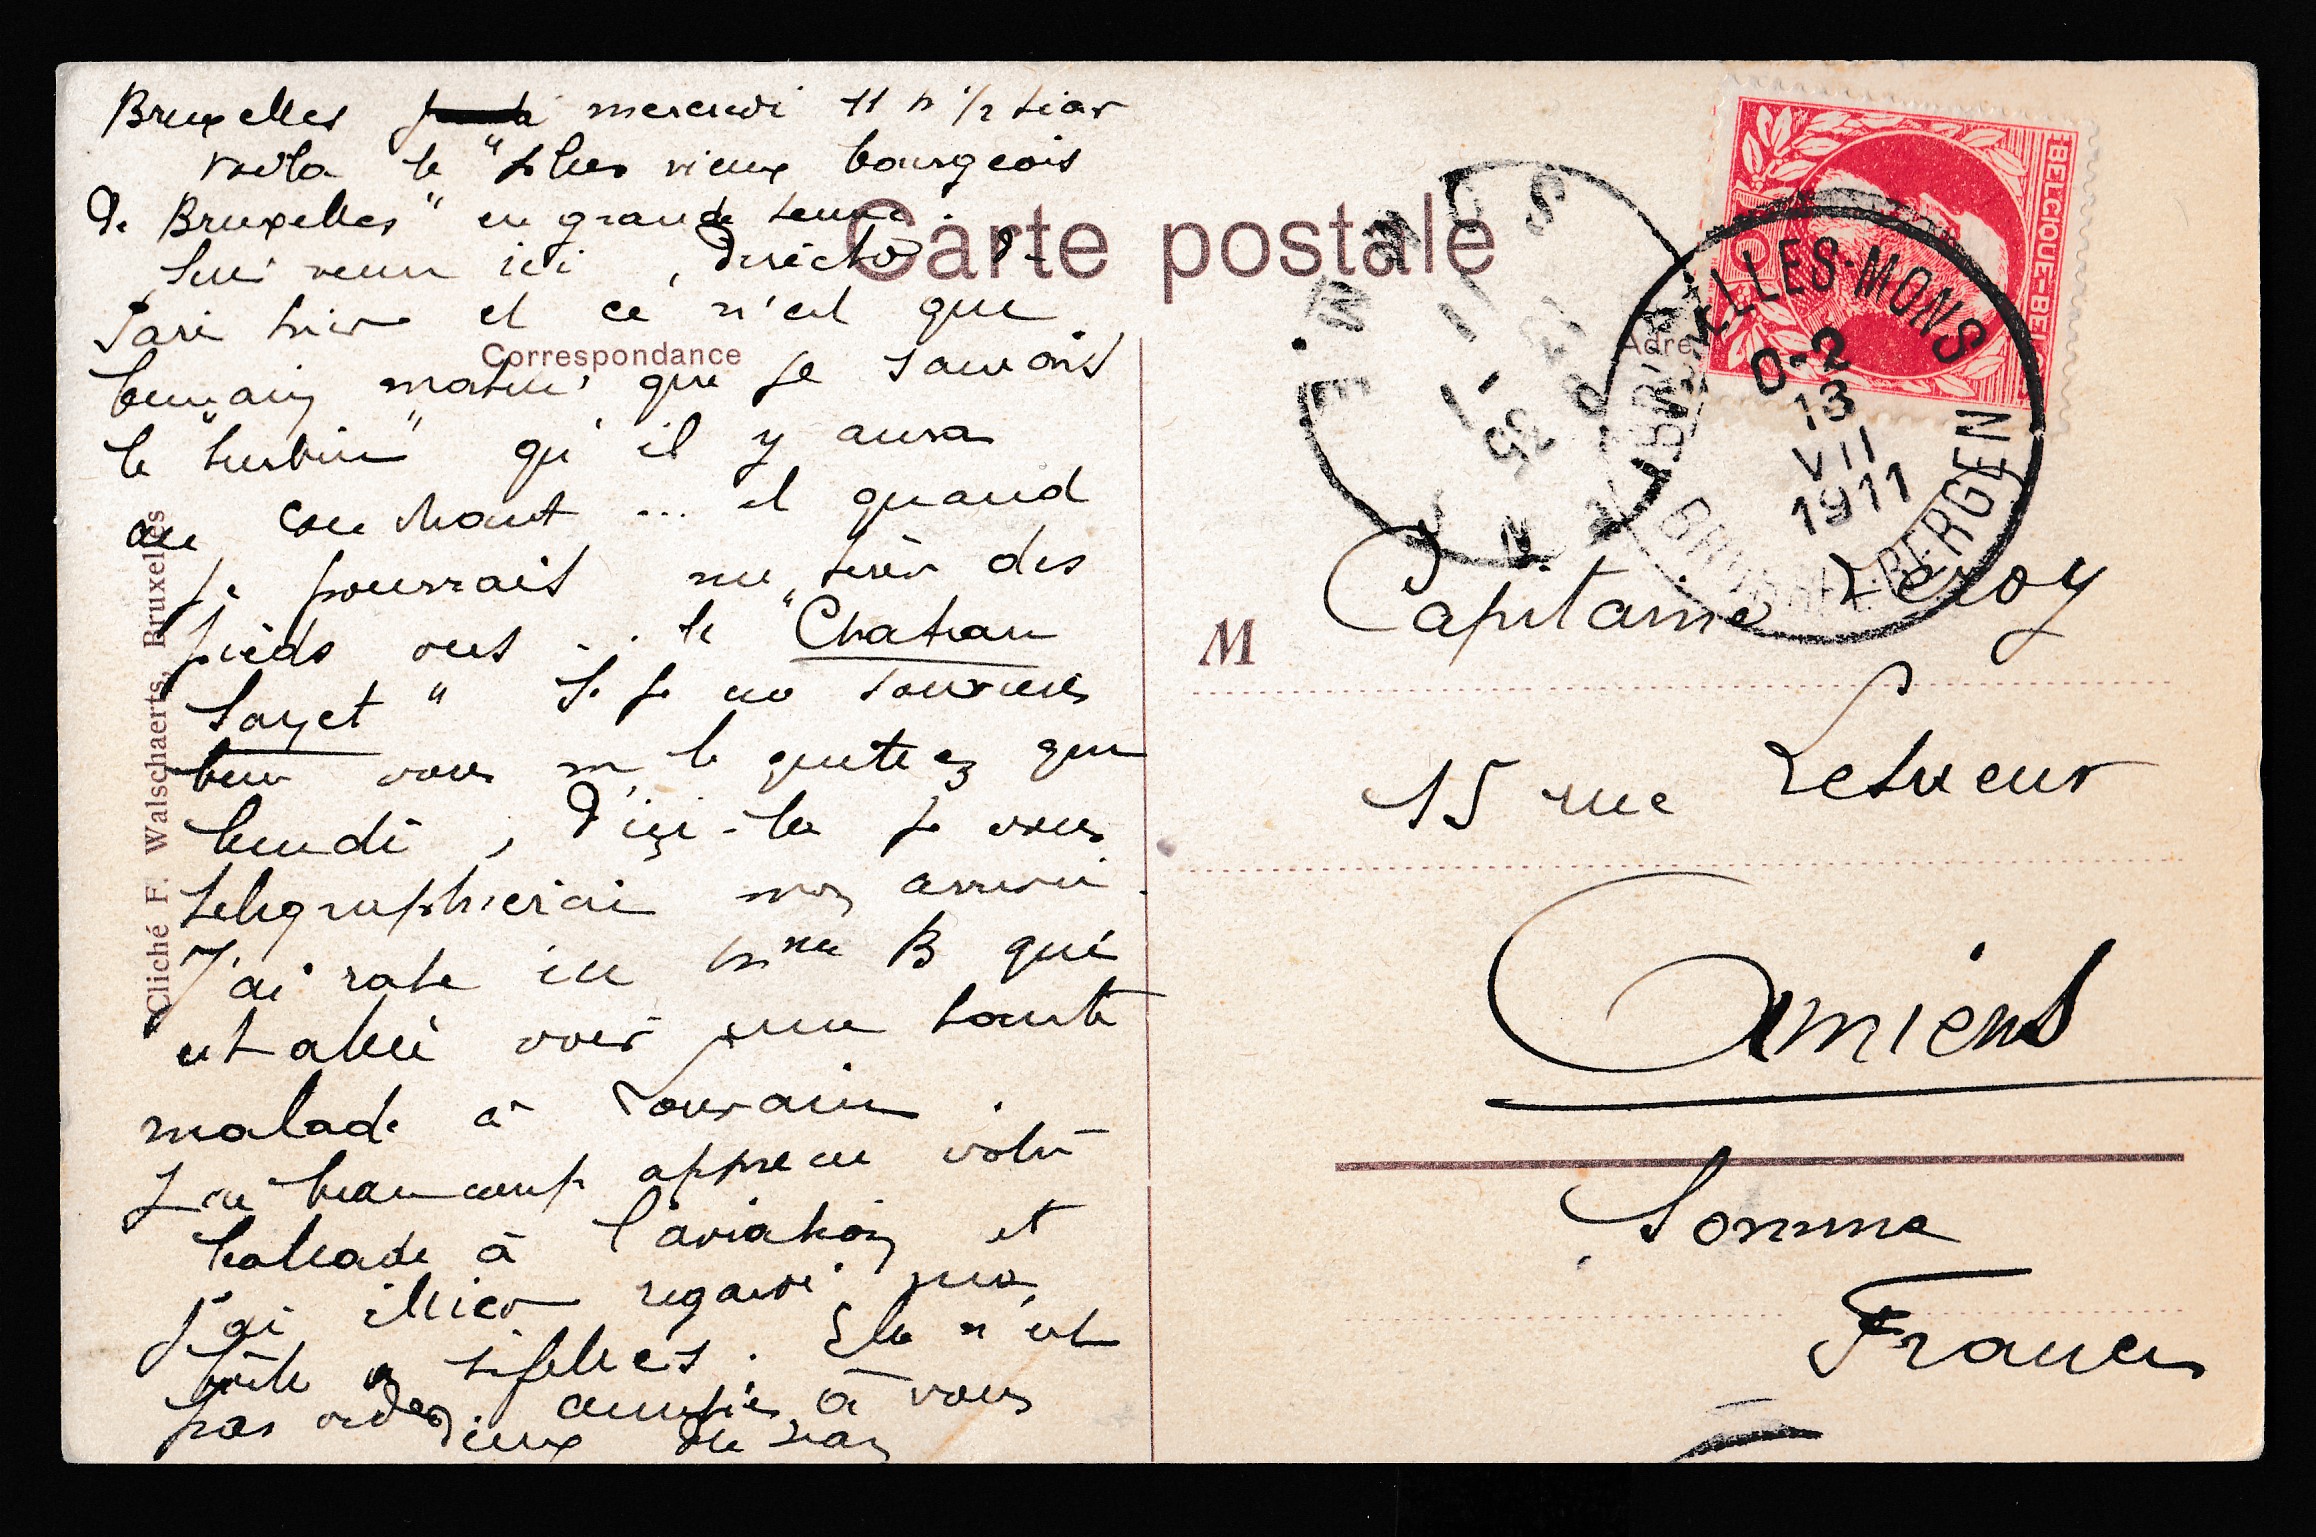 Bruxelles mercredi 11 h 1/2 soir
voila le "plus vieux bourgeois
de Bruxelles" en grande tenue.
Suis venu ici, directo de
Paris hier et ce n'est que
demain matin que je saurais
le "turbin" qu'il y aura
au couchant ... et quand
je pourrais me tirer des
pieds vers .. le "Chateau
Sayet" Si je me souviens
bien vous ne le quittez que
lundi, d'ici-la je vous
telegraphierai mon arrivée.
J'ai raté ici Mme B qui
est allée voir une tante
malade à Louvain.
J'ai beaucoup apprecié votre
ballade à l'aviation et
j'ai illico regardé ma
boite à sifflets. Elle n'est
pas vide
amitiés à vous
deux
Carte postale
Correspondance
Cliché F. Walschaerts, Bruxelles
BELGIQUE-BE
BRUXELLES-MONS
0-2
13
VII
1911
BRUSSEL-BERGEN
M
Capitaine Leroy
15 rue Lesueur
Amiens
Somme
France